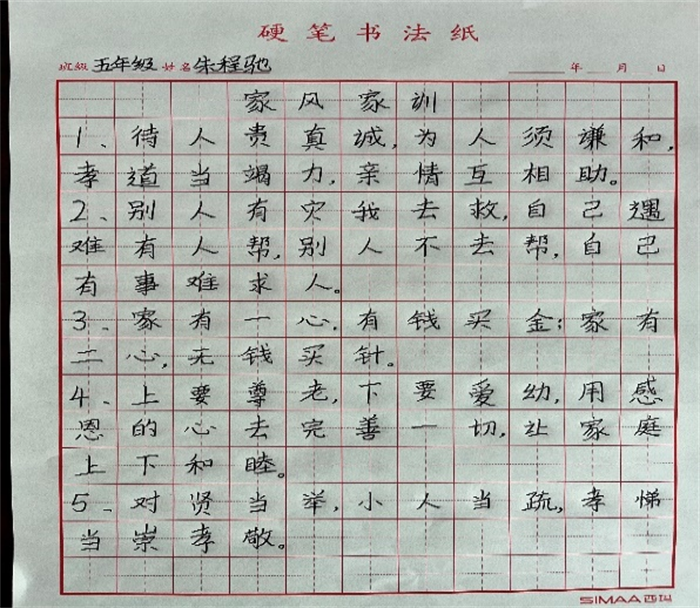 硬笔书法纸
班级 五年级 姓名 朱程驰 年 月 日
家风家训
1、待人贵真诚,为人须谦和,
孝道当竭力,亲情互相助。
2、别人有灾我去救,自己遇
难有人帮,别人不去帮,自己
有事难求人。
3、家有一心,有钱买金;家有
二心,无钱买针。
4、上要尊老,下要爱幼,用感
恩的心去完善一切,让家庭
上下和睦。
5、对贤当举,小人当疏,孝悌
当崇孝敬。
SIMAA 西玛